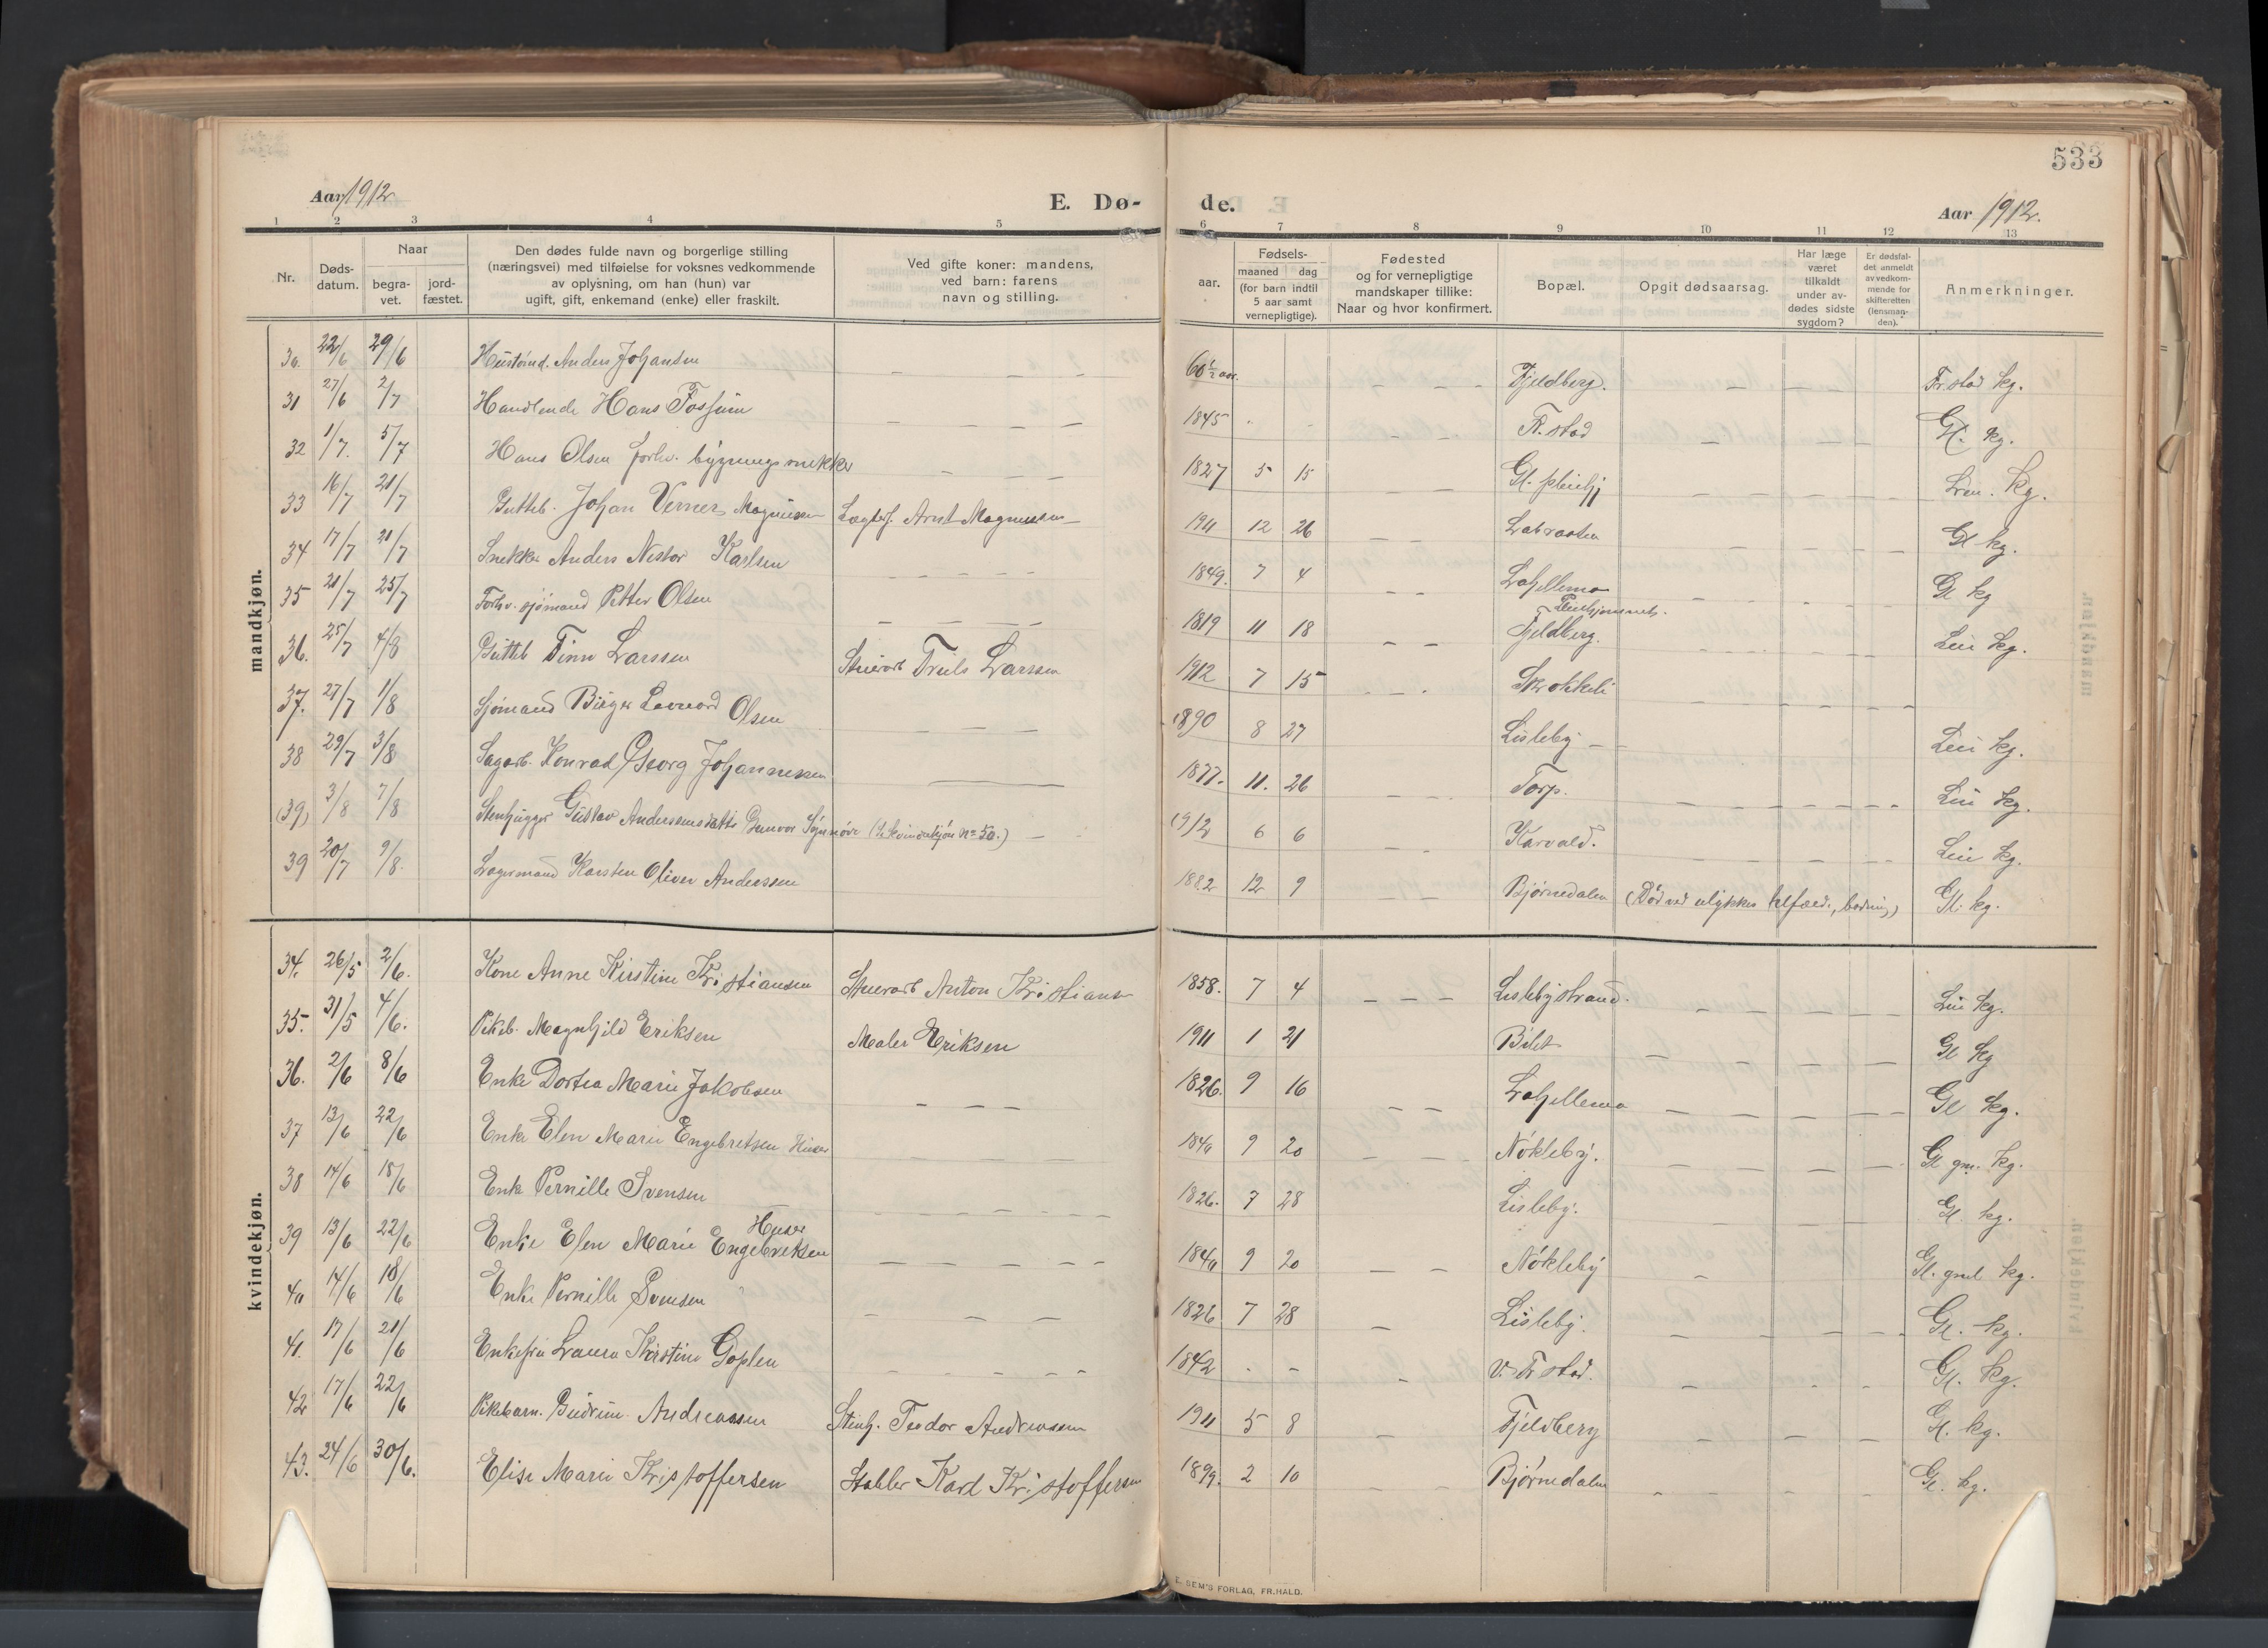 533
Aar 1912
E. Dø-
de.
Aar 1912.
1 2 3 4 5 6 7 8 9 10 11 12 13
Nr.
Døds-
datum.
Naar
begra-
vet.
jord-
fæstet.
Den dødes fulde navn og borgerlige stilling
(næringsvei) med tilføielse for voksnes vedkommende
av oplysning, om han (hun) var
ugift, gift, enkemand (enke) eller fraskilt.
Ved gifte koner: mandens,
ved barn: farens
navn og stilling.
aar.
Fødsels-
maaned dag
(for barn indtil
5 aar samt
vernepligtige).
Fødested
og for vernepligtige
mandskaper tillike:
Naar og hvor konfirmert.
Bopæl.
Opgit dødsaarsag.
Har læge
været
tilkaldt
under av-
dødes sidste
sygdom?
Er dødsfal-
det anmeldt
av vedkom-
mende for
skifteretten
(lensman-
den).
Anmerkninger.
mandkjøn.
30. 22/6 29/6 Anders Johansen 60 1/2 aar. Fjeldberg. Fr.stad kg.
31 27/6 2/7 Handlende Hans Fossum 1845 Fr. stad Gl. kg.
32 1/7. 5/7 Hans Olsen forhv. bygningssnekker 1827 5 15 Gl. kg.
33 16/7 21/7 Gutteb. Johan Verner Magnussen Arnt Magnussen 1911 12 26 Gl kg.
34 17/7 21/7 Snekker Anders Nestor Karlsen 1849. 7 4 Lahellemo Gl kg
35 21/7 25/7 Forhv. sjømand Petter Olsen 1819 11 18 Fjeldberg. kg.
36. 25/7 4/8 Gutteb Finn Larssen Stuerarb Truls Larssen 1912 7 15
37. 27/7 1/8 Sjømand Birger Leonard Olsen 1890 8 27 Lisleby kg.
38 29/7 3/8 Sagarb. Konrad Georg Johannessen 1877. 11. 26 Torp. kg.
(39) 3/8 7/8 Stenhugger Gustav Anderssens datter Gunvor Synnøve (se kvindekjøn No 50.) 1912 6 6 Karvald. kg.
39 20/7 9/8. Lagermand Karsten Oliver Anderssen 1882 12 9 Bjørnedalen (Død ved ulykkes tilfæld., Gl. kg.
kvindekjøn.
34. 26/5 2/6. Kone Anne Kirstine Kristiansen Stuerarb Anton Kristiansen 1858. 7 4 Lislebystrand. kg.
35. 31/5 4/6. Pikeb. Magnhild Eriksen Maler Eriksen 1911 1 21 Gl kg
36. 2/6 8/6 Enke Dortea Marie Jakobsen 1826. 9 16 Lahellemo Gl kg.
37 13/6 22/6 Enke Elen Marie Engebretsen Huser 1840 9 20 Nøkleby. Gl gml. kg.
38 14/6 18/6 Enke Pernille Svensen 1826. 7 28 Lisleby. Gl. kg.
39 13/6 22/6 Enke Elen Marie Engebretsen Huser 1840 9 20 Nøkleby Gl. gml kg.
40 14/6 18/6 Enke Pernille Svensen 1826 7 28 Lisleby. Gl. kg.
41. 17/6 21/6 Enkefru Laura Kirstine Goplen 1842 V. Fr stad. Gl. kg.
42 17/6 22/6 Pikebarn. Gudrun Andreassen Stenh. Teodor Andreassen 1911 5 8 Fjeldberg Gl. kg.
43. 24/6 30/6. Elise Marie Kristoffersen Stabler Karl Kristoffersen 1899. 2 10 Bjørnedalen Gl. kg.
E. SEM'S FORLAG, FR.HALD.